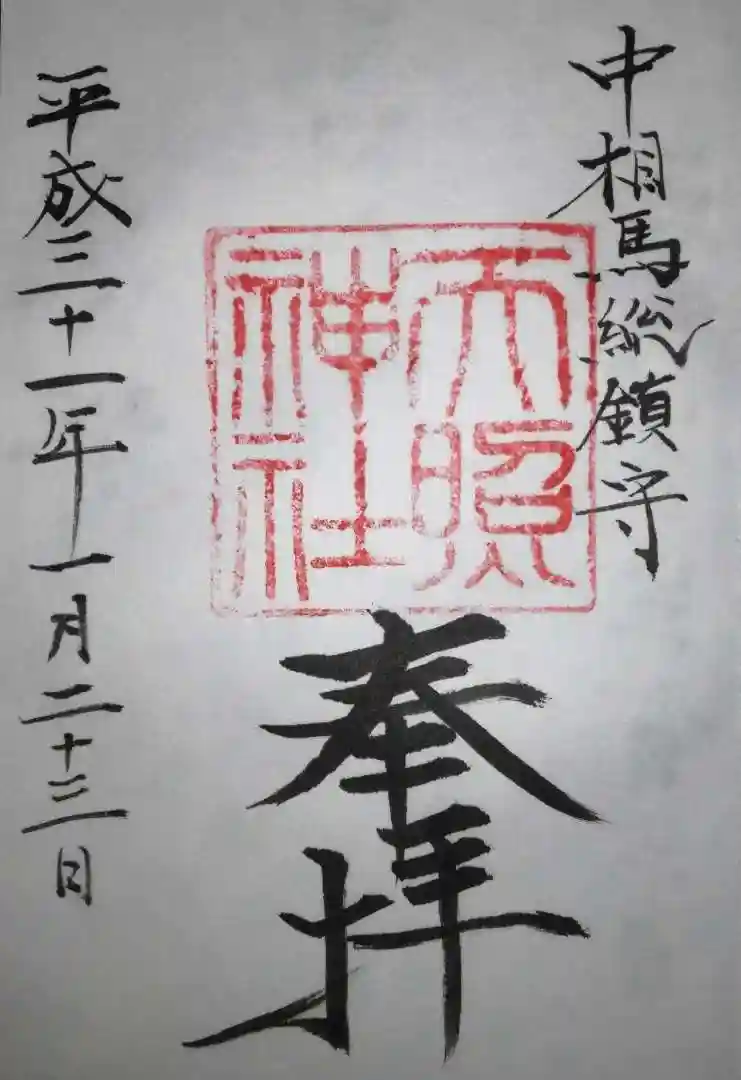 中相馬総鎮守
天照
神社
奉拝
平成三十一年一月二十三日